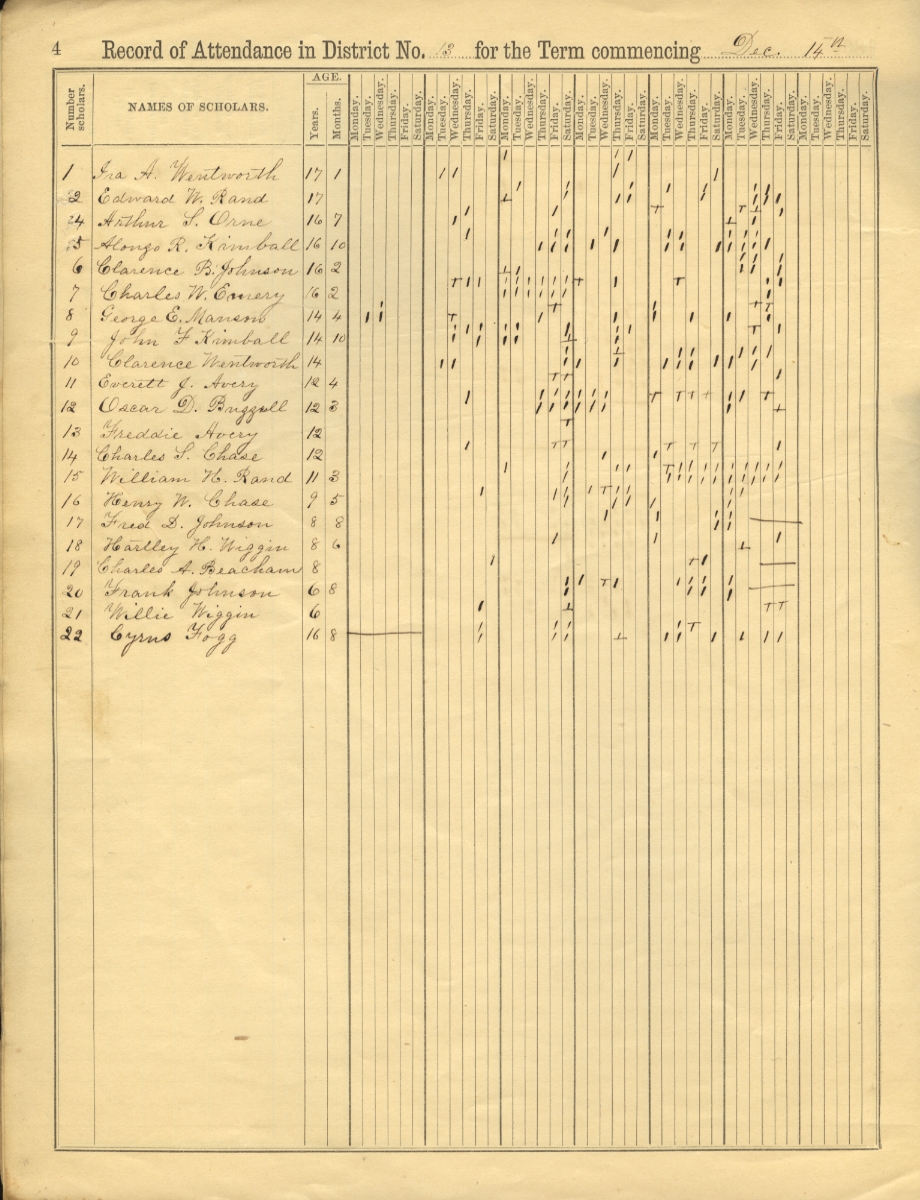 4 Record of Attendance in District No. 13 for the Term commencing Dec. 14th
Number scholars. NAMES OF SCHOLARS. AGE. Years. Months. Monday. Tuesday. Wednesday. Thursday. Friday. Saturday. Monday. Tuesday. Wednesday. Thursday. Friday. Saturday. Monday. Tuesday. Wednesday. Thursday. Friday. Saturday. Monday. Tuesday. Wednesday. Thursday. Friday. Saturday. Monday. Tuesday. Wednesday. Thursday. Friday. Saturday. Monday. Tuesday. Wednesday. Thursday. Friday. Saturday. Monday. Tuesday. Wednesday. Thursday. Friday. Saturday.
1 Ira A. Wentworth 17 1
2 Edward W. Rand 17
4 Arthur S. Orne 16 7
5 Alongo R. Kimball 16 10
6 Clarence B. Johnson 16 2
7 Charles W. Emery 16 2
8 George E. Manson 14 4
9 John F Kimball 14 10
10 Clarence Wentworth 14
11 Everett J. Avery 12 4
12 Oscar D. 12 3
13 Freddie Avery 12
14 Charles S. Chase 12
15 William H. Rand 11 3
16 Henry W. Chase 9 5
17 Fred D. Johnson 8 8
18 Hartley H. Wiggin 8 6
19 Charles A. Beacham 8
20 Frank Johnson 6 8
21 Willie Wiggin 6
22 Cyrus Fogg 16 8